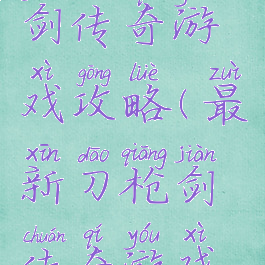 剑传奇游
xì gōng lüè zuì
戏攻略(最
xīn dāo qiāng jiàn
新刀枪剑
chuán qí yóu xì
传奇游戏